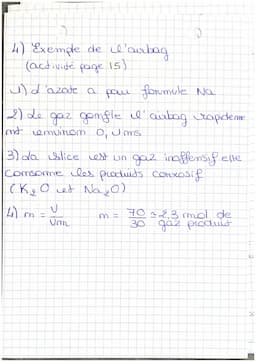 4) Exemple de l'airbag
(activité page 15)
1) d'azote a pour formule Na
2) de gaz gomfle l'airbag rapideme
mt 0,
3) da silice est un gaz inoffensif elle
comsomme les produits corrosif
(K₂O et Na₂O)
4) m = V/Vm   m = 70/30 ≈ 2,3 mol de
gaz produit